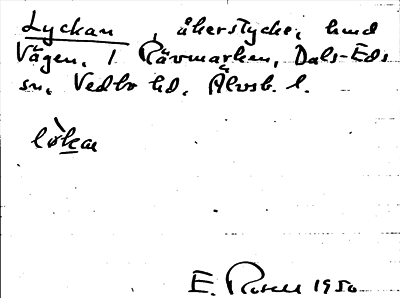 Lyckan, åkerstycke, hmd
Vägen, 1 Rävmarken, Dals-Eds
sn, Vedbo hd, Älvsb. l.
lo᷈kan
E. Rosell 1950